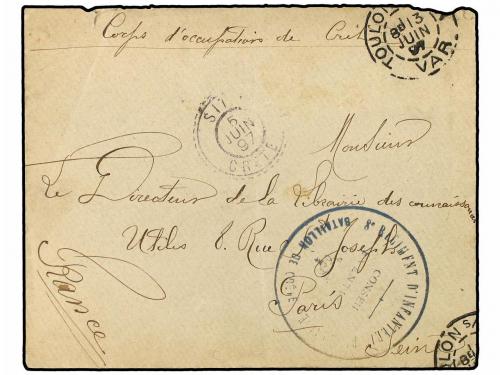 Corps d'occupation de Crète
TOULON
13
JUIN
97
VAR
SIT
5
JUIN
97
CRETE
Monsieur
Le Directeur de la librairie des connaissances
Utiles 8. Rue St Joseph
Paris
Seine
France
8e REGIMENT D'INFANTERIE
BATAILLON DE
CONSEIL